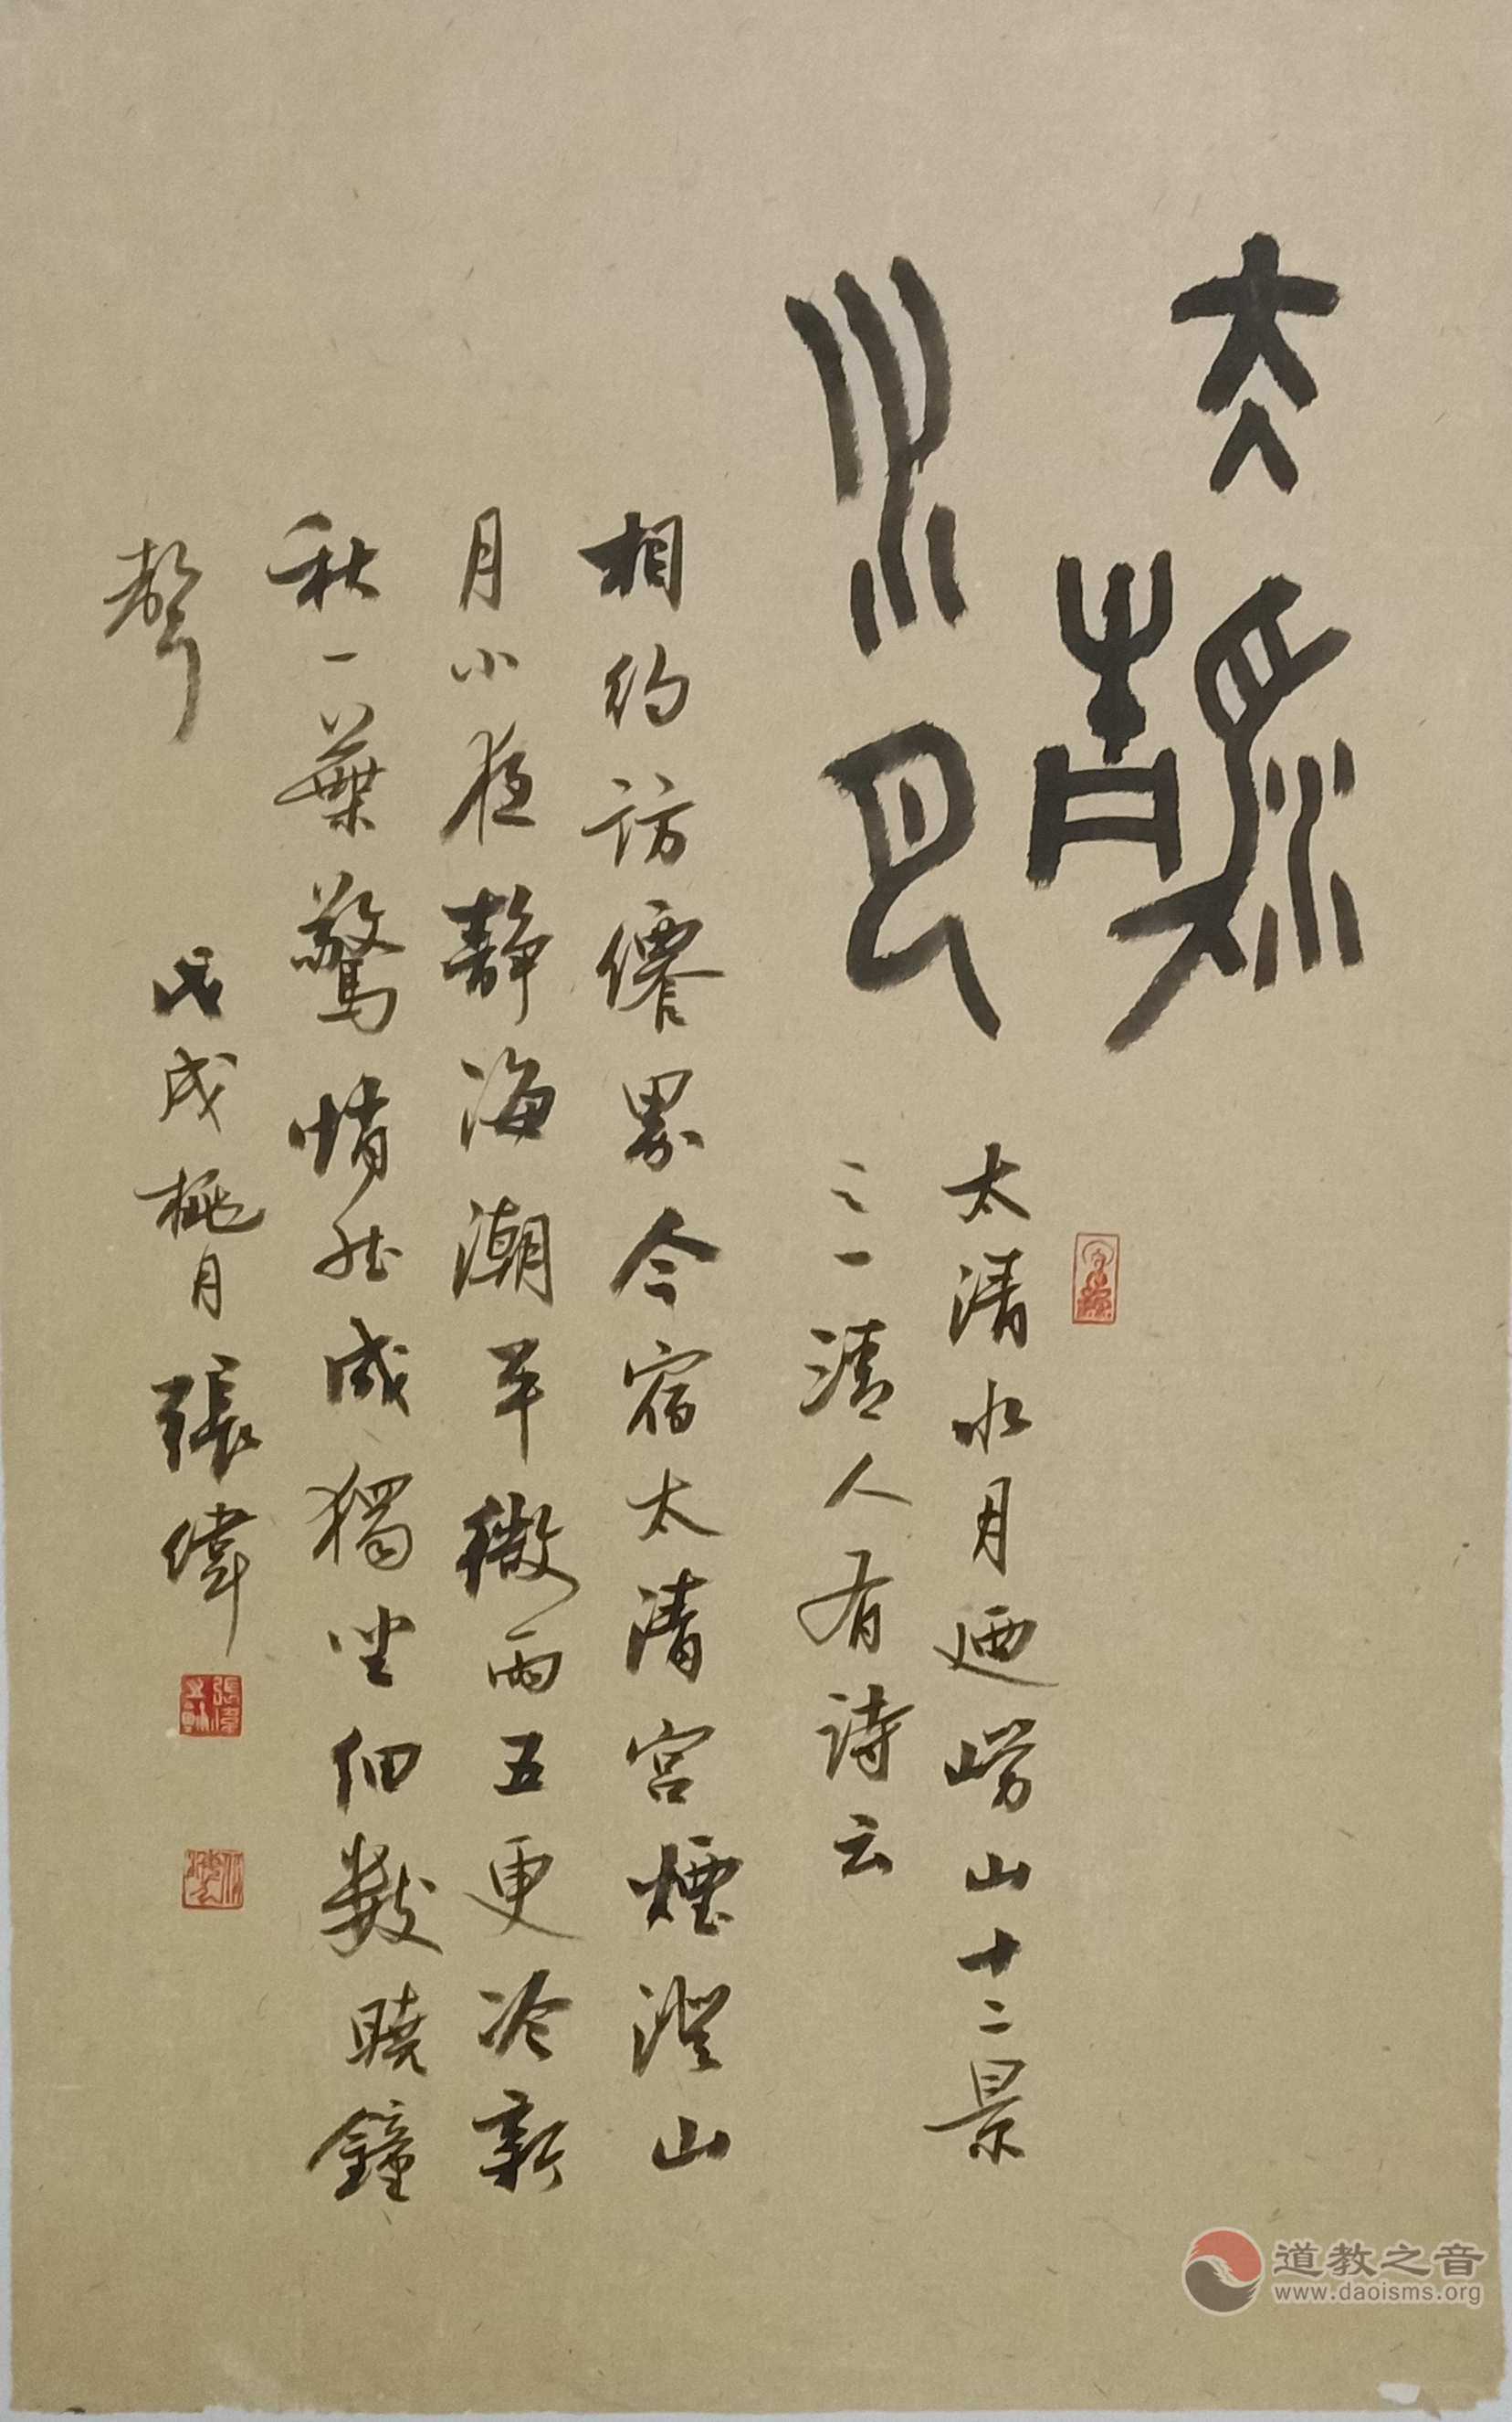 太瀞
水月
太清水月迺崂山十二景
之一清人有詩云
相約訪僊界今宿太清宮煙澄山
月小夜靜海潮平微雨五更冷新
秋一葉驚悄然成獨坐細數曉鐘
聲
戊戌桃月張偉
道教之音
www.daoisms.org